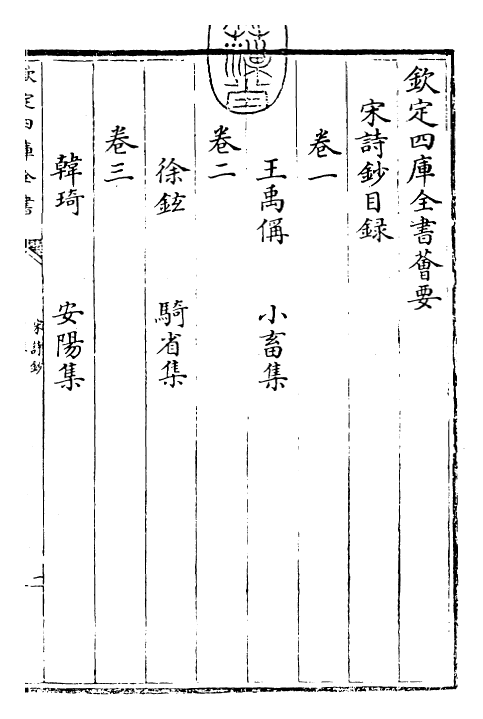 欽定四庫全書薈要
宋詩鈔目録
卷一
王禹偁　小畜集
卷二
徐鉉　騎省集
卷三
韓琦　安陽集
欽定四庫全書
宋詩鈔